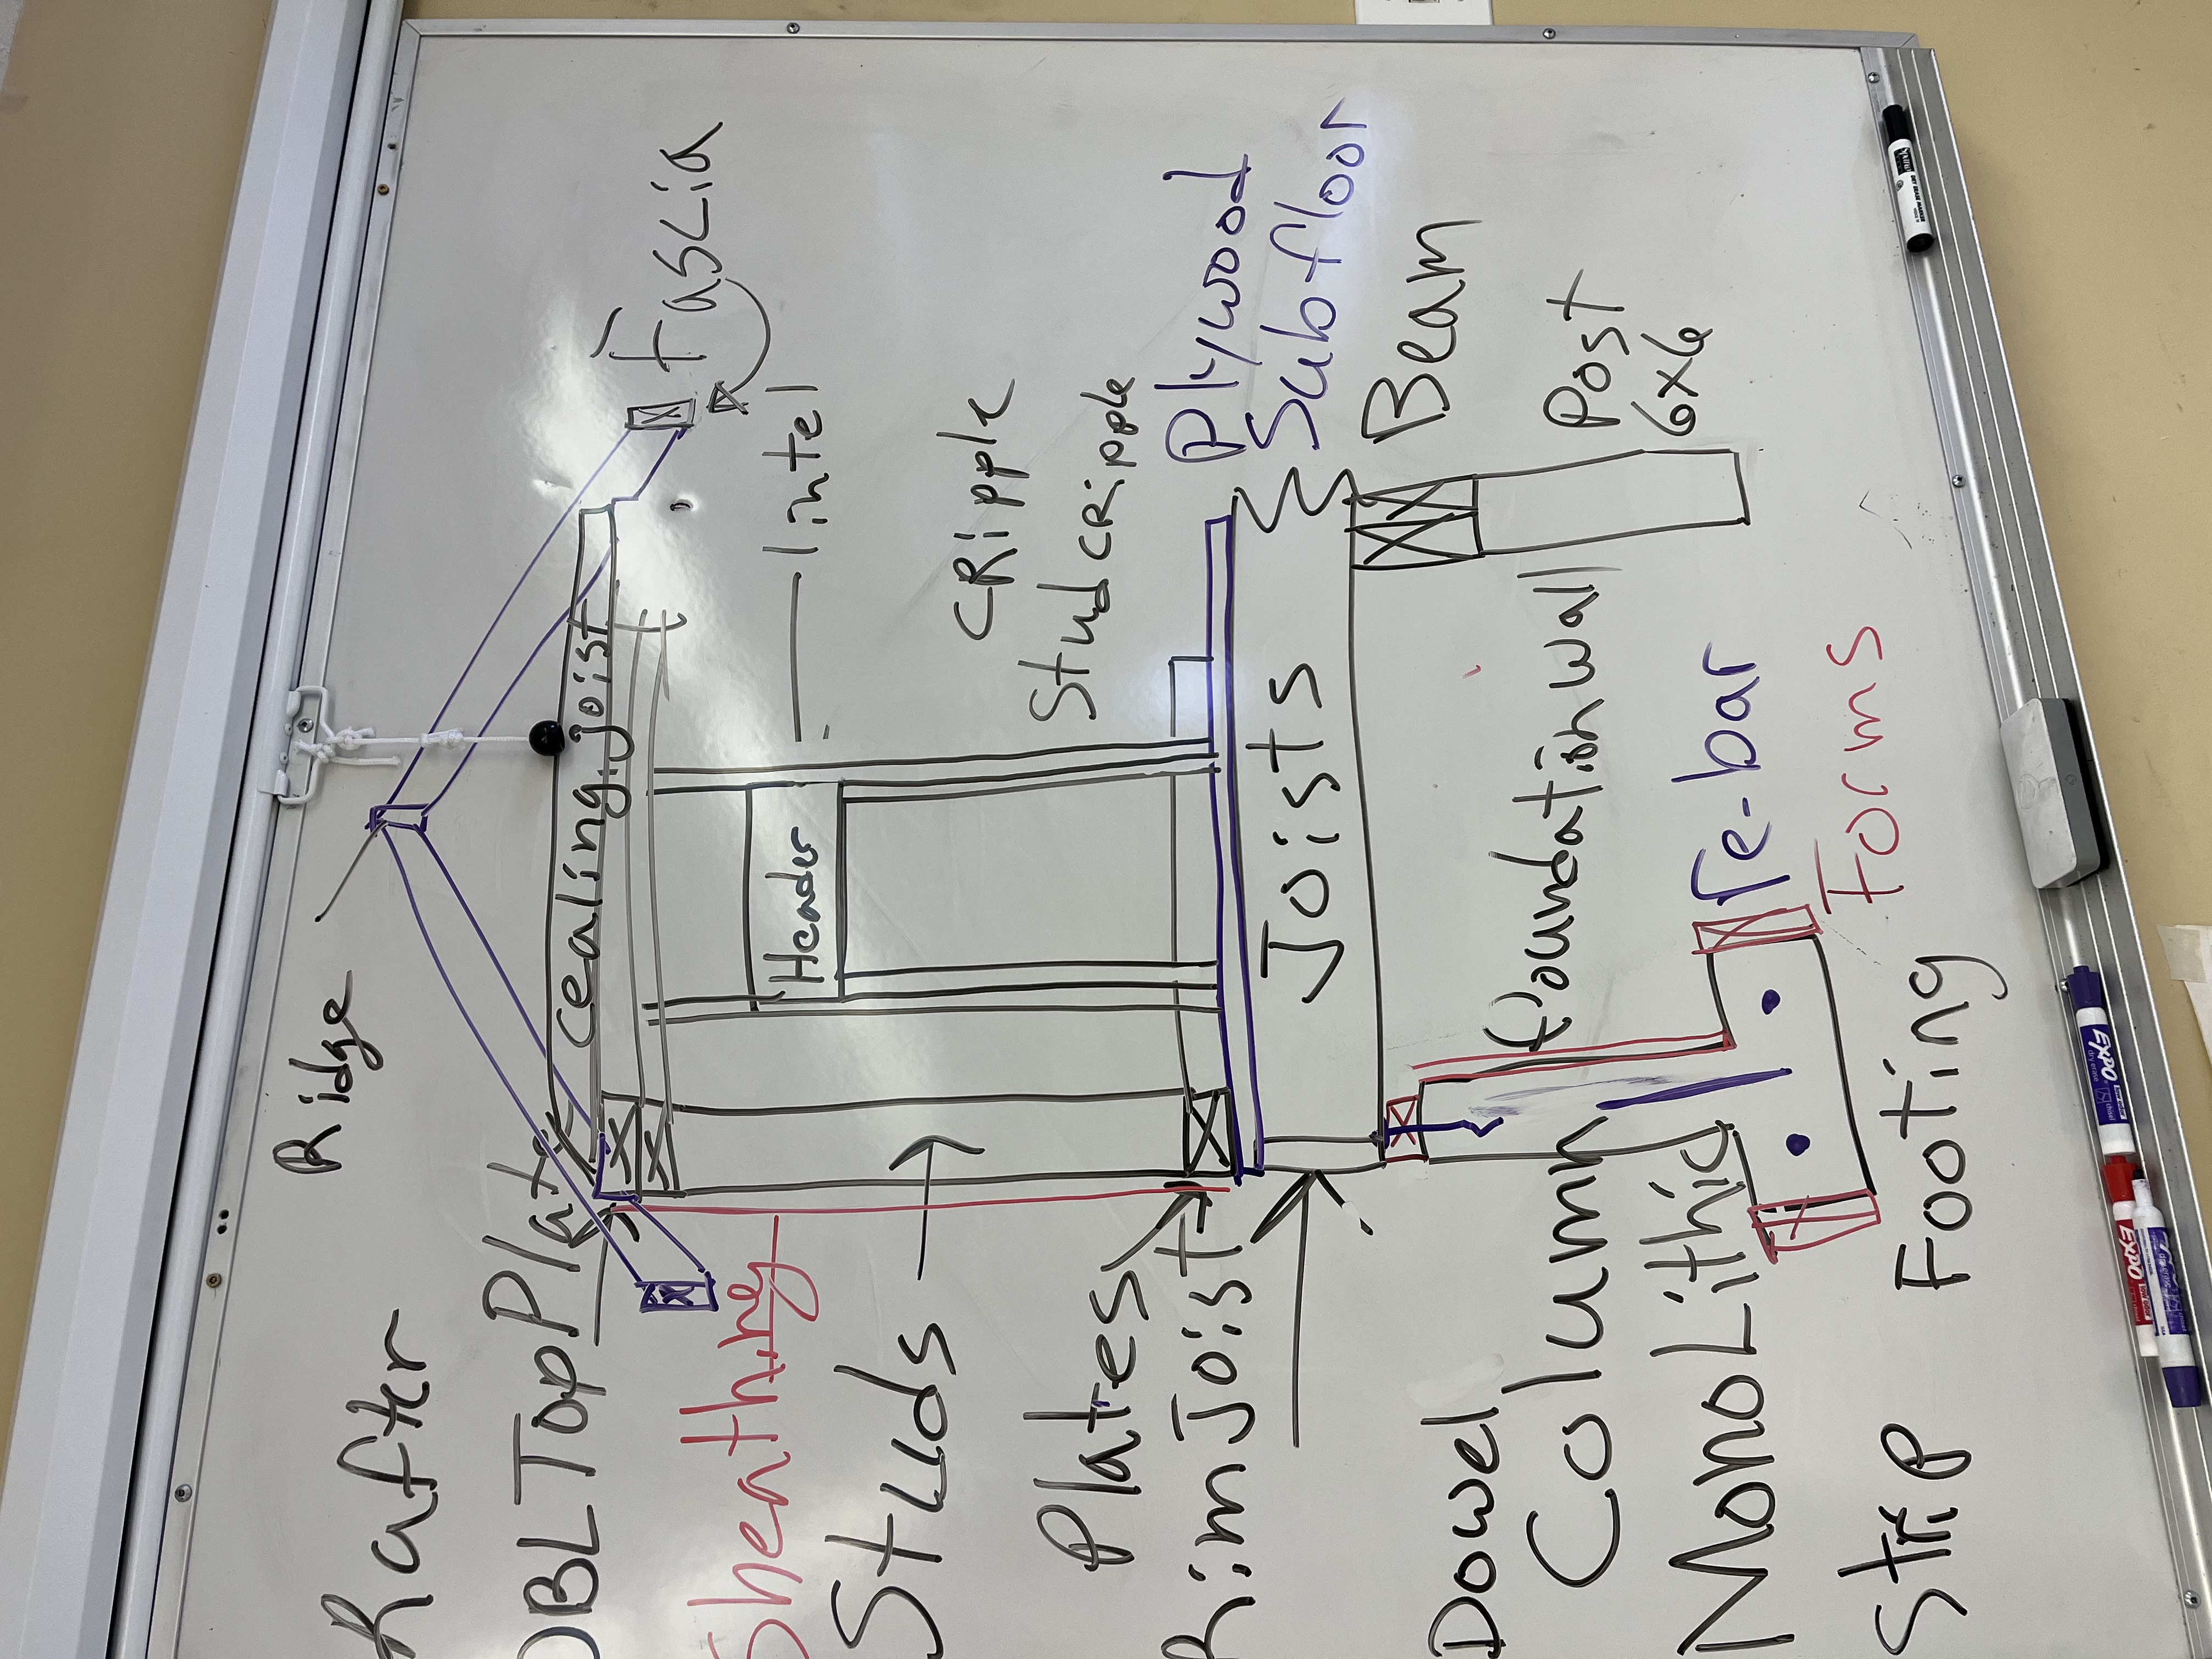 Ridge
Rafter
Fascia
cealing joist
DBL Top Plate
lintel
Header
Sheathing
Studs
CRipple
Stud CRipple
Plates
Plywood
Sub floor
Rim Joist
Joists
Beam
Post
6x6
foundation wall
Dowel
Column
Re-bar
MonoLithic
Forms
Strip Footing
EXPO
dry erase
EXPO